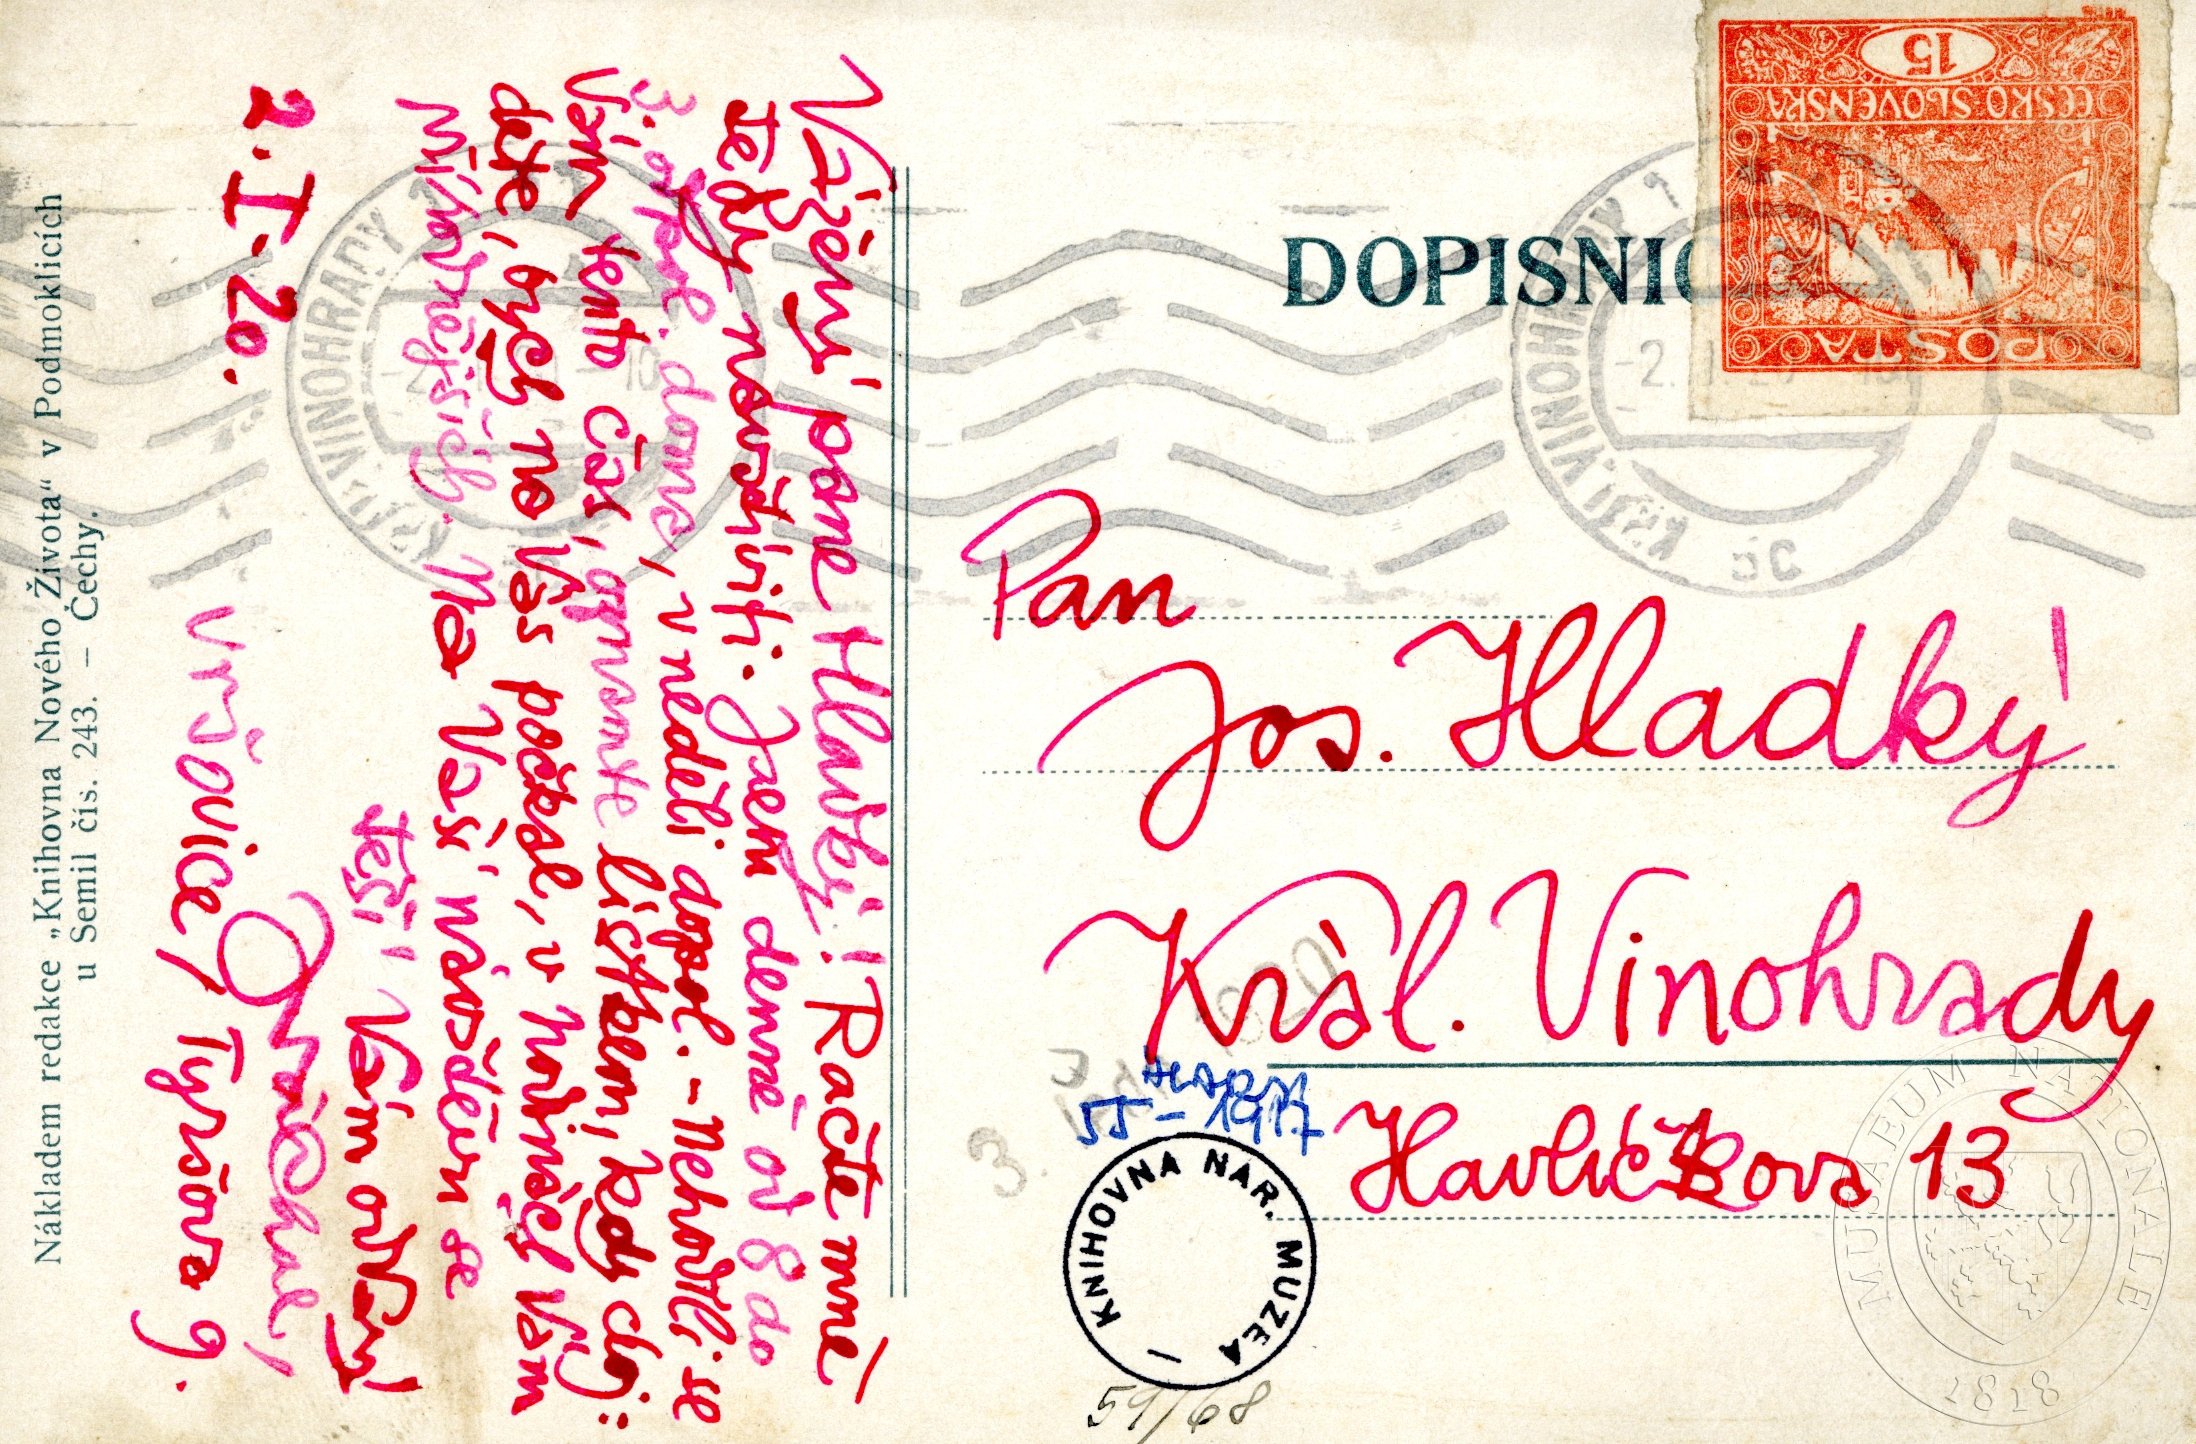 Vážený pane Hladký! Račte mně
tedy navštíviti. Jsem denně od 8 do
3. odpol. doma, v neděli dopol. - Nehodilli se
Vám tento čas, oznamte lístkem, kdy doj-
dete, bych na Vás počkal, v hodinách Vám
nejvhodnějších. Na Vaší návštěvu se
těší Vám oddaný
Váchal,
2. I. 20. Vršovice, Tyršova 9.
Nákladem redakce „Knihovna Nového Života“ v Podmoklicích
u Semil čís. 243. – Čechy.
DOPISNIC
POŠTA
ČESKO-SLOVENSKÁ
15
KRÁL. VINOHRADY 1
-2. I. 20
Pan
Jos. Hladký
Král. Vinohrady
Havlíčkova 13
3. 1920
55-1917
KNIHOVNA NÁR. MUZEA
59/68
MUSAEUM NATIONALE
1818